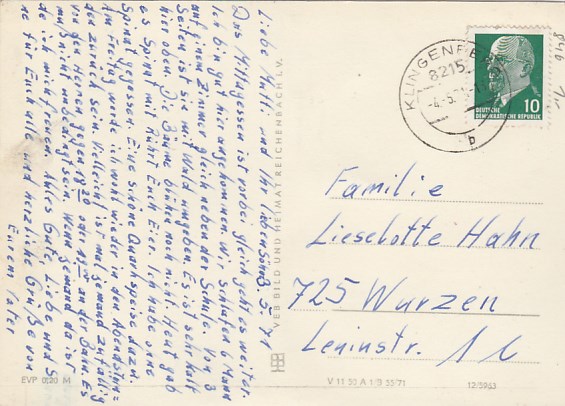 Liebe Mutti und Ihr Lieben 5.5.71
Das Mittagessen ist vorbei, gleich geht es weiter.
Ich bin gut hier angekommen. Wir schlafen 6 Mann
auf einem Zimmer gleich neben der Schule. Von 3
Seiten ist sie mit Wald umgeben. Es ist sehr kalt
hier oben. Die Bäume blühen noch nicht. Heut gab
es Spinat mit Rührei Eier. Ich habe ohne
Spinat gegessen. Eine schöne Quarkspeise dazu.
Am Freitag würde ich wohl wieder in den Abendstun-
den zurück sein. Vielleicht ist mal jemand zufällig
vor der Herren gegen 18 20 oder 19 an der Bahn. Es
muß nicht unbedingt sein. Wenn jemand da ist
de ich mich freuen. Alles Gute, Liebe und S
ne für Euch alle und herzliche Grüße von
Eurem Vater
VEB BILD UND HEIMAT REICHENBACH I. V.
KLINGENBE
8215
-4.-5.71
b
DEUTSCHE
DEMOKRATISCHE REPUBLIK
10
Familie
Lieselotte Hahn
725 Wurzen
Leninstr. 1c
EVP 0,20 M
V 11 50 A 1/B 55/71
12/5963